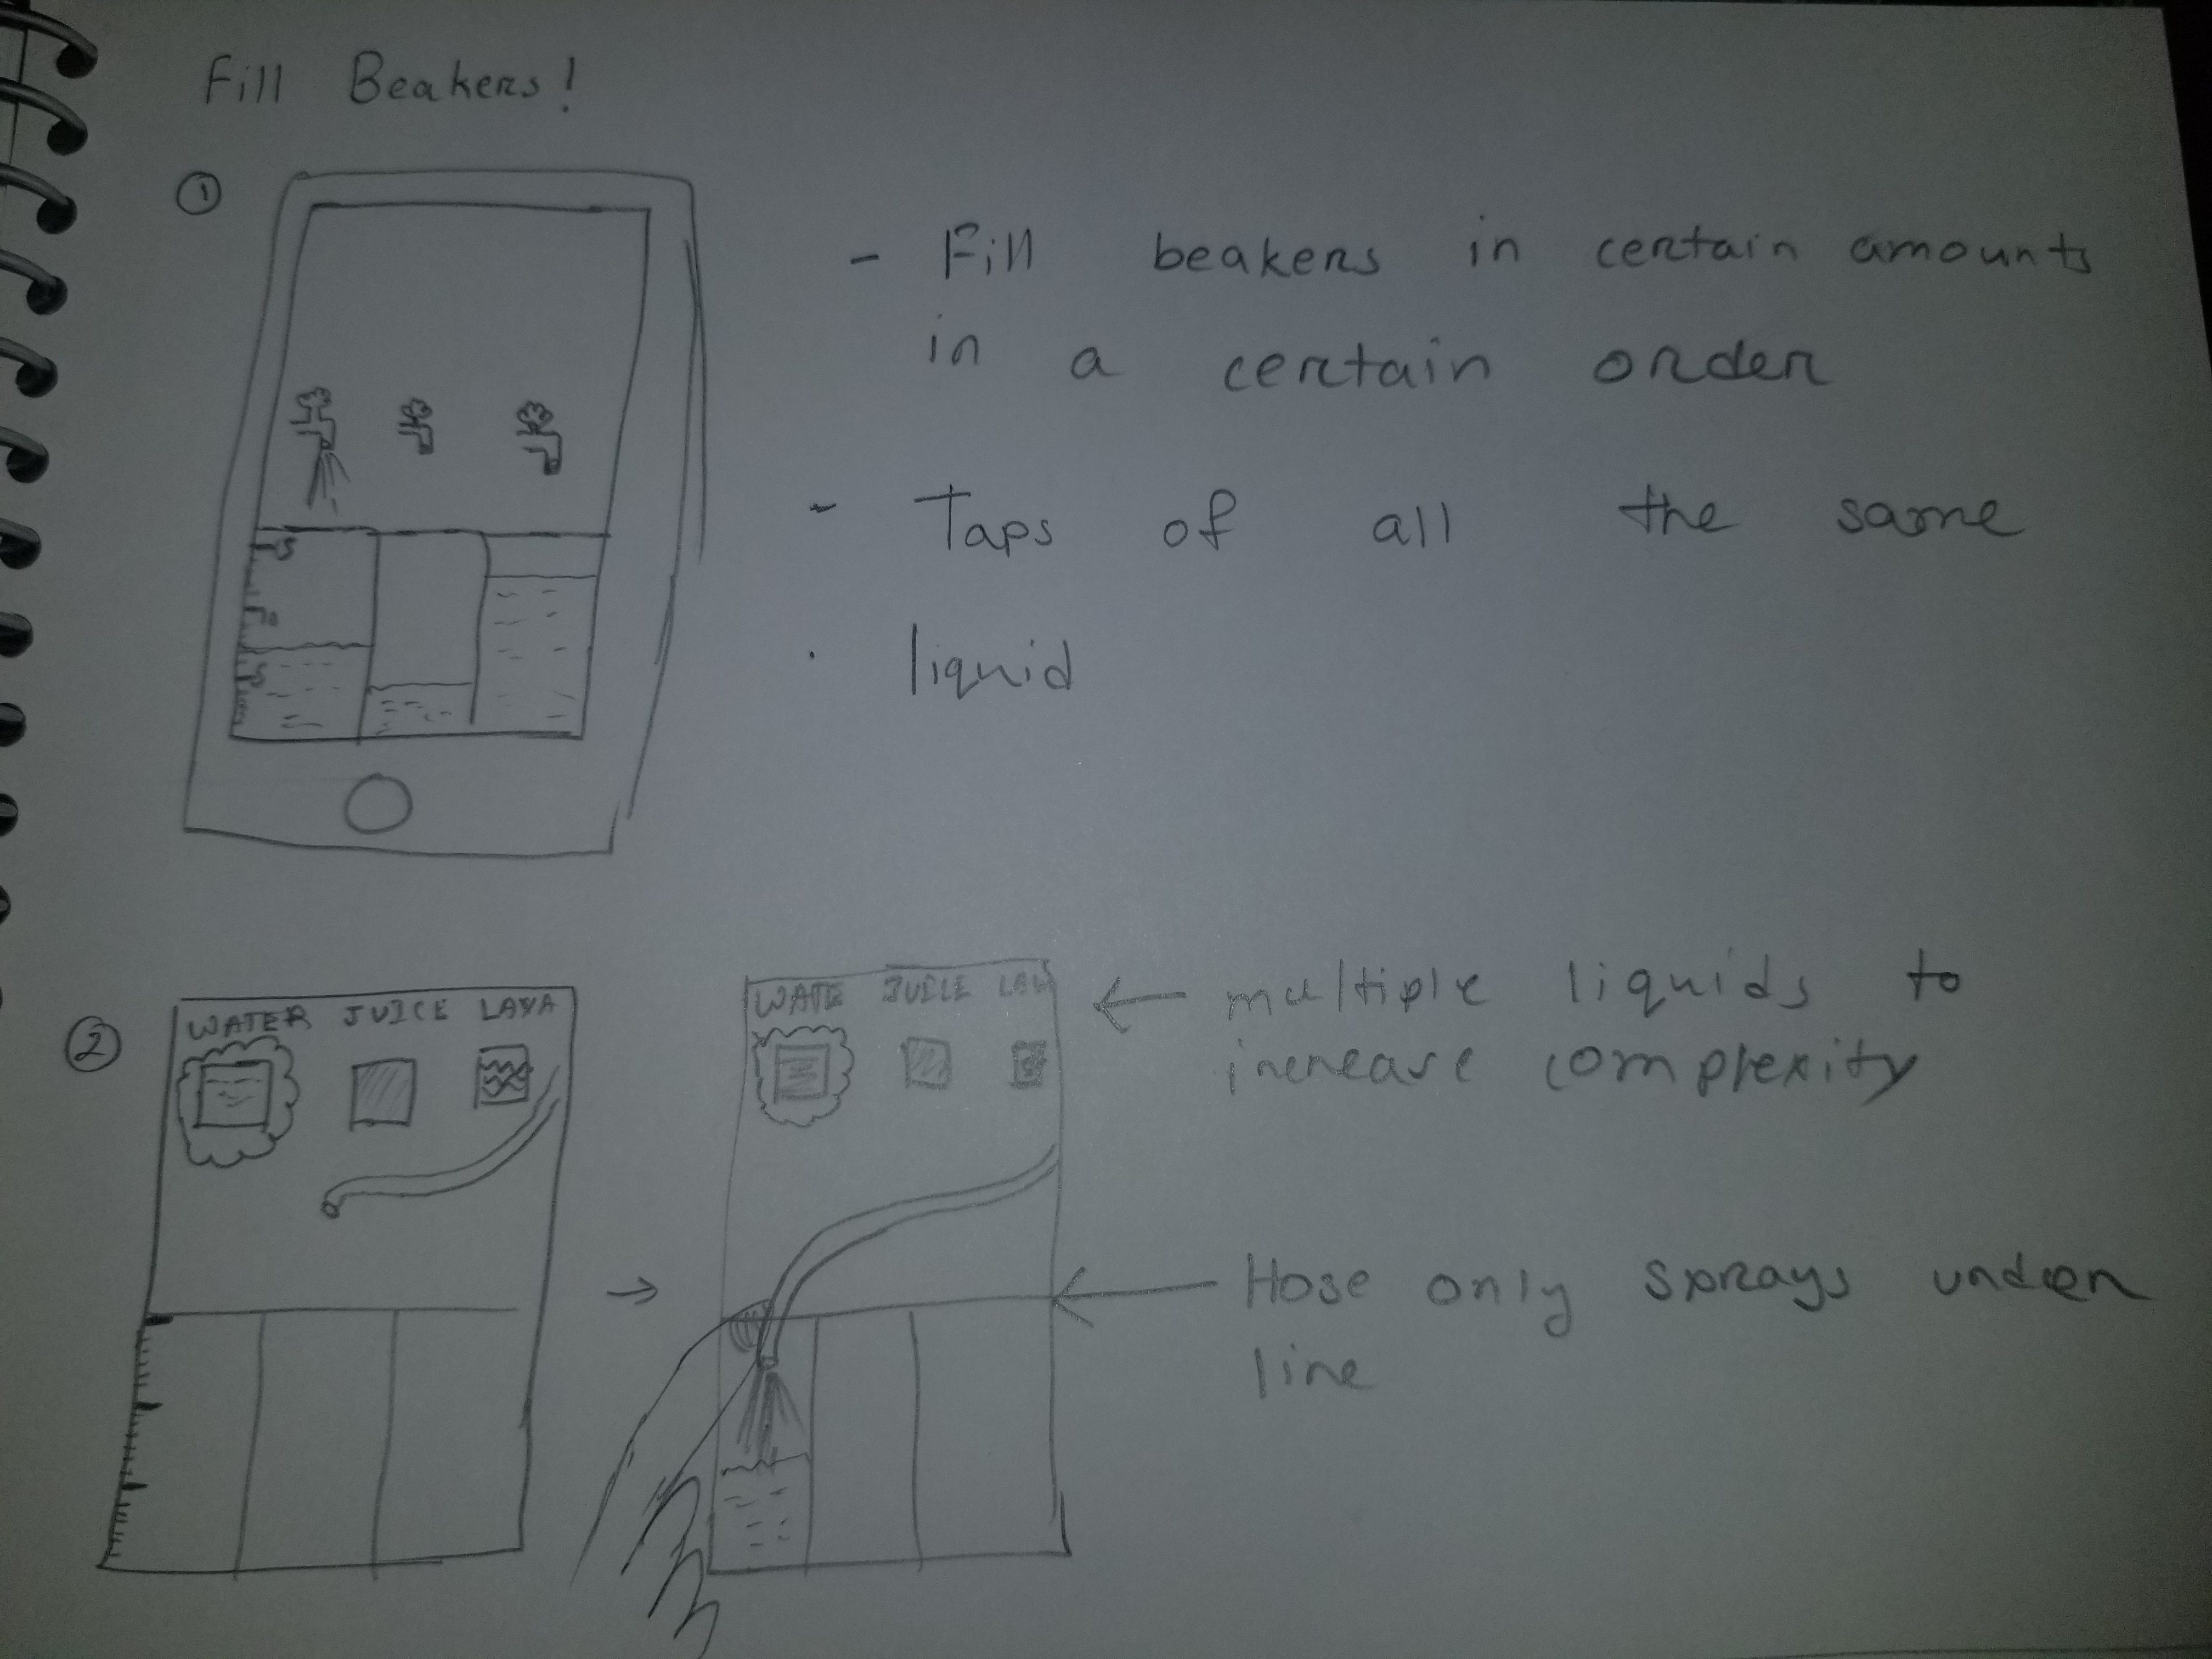 Fill Beakers!
1
- Fill beakers in certain amounts
in a certain order
- Taps of all the same
liquid
2
WATER JUICE LAVA
WATE JUICE LAV
multiple liquids to
increase complexity
Hose only sprays under
line